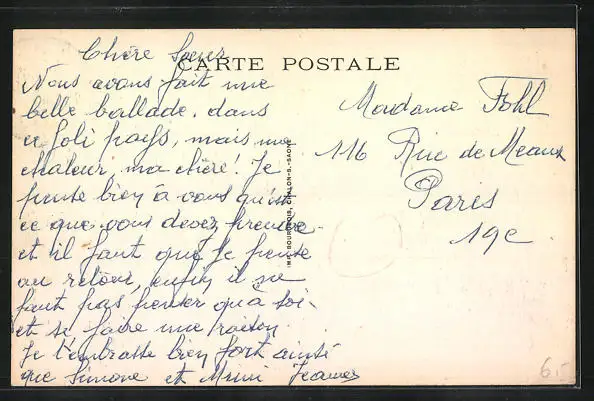 CARTE POSTALE
Chère Soeur
Nous avons fait une
belle ballade. dans
ce joli pays, mais une
chaleur, ma chère! Je
pense bien à vous
ce que vous devez prendre
et il faut que je pense
au retour, enfin il ne
faut pas penser qu'à soi
et se faire une raison
Je t'embrasse bien fort ainsi
que Simone et Mimi Jeanne
IMP. BOURGEOIS, CHALON-S.-SAONE
Madame Fohl
116 Rue de Meaux
Paris
19e
6.-